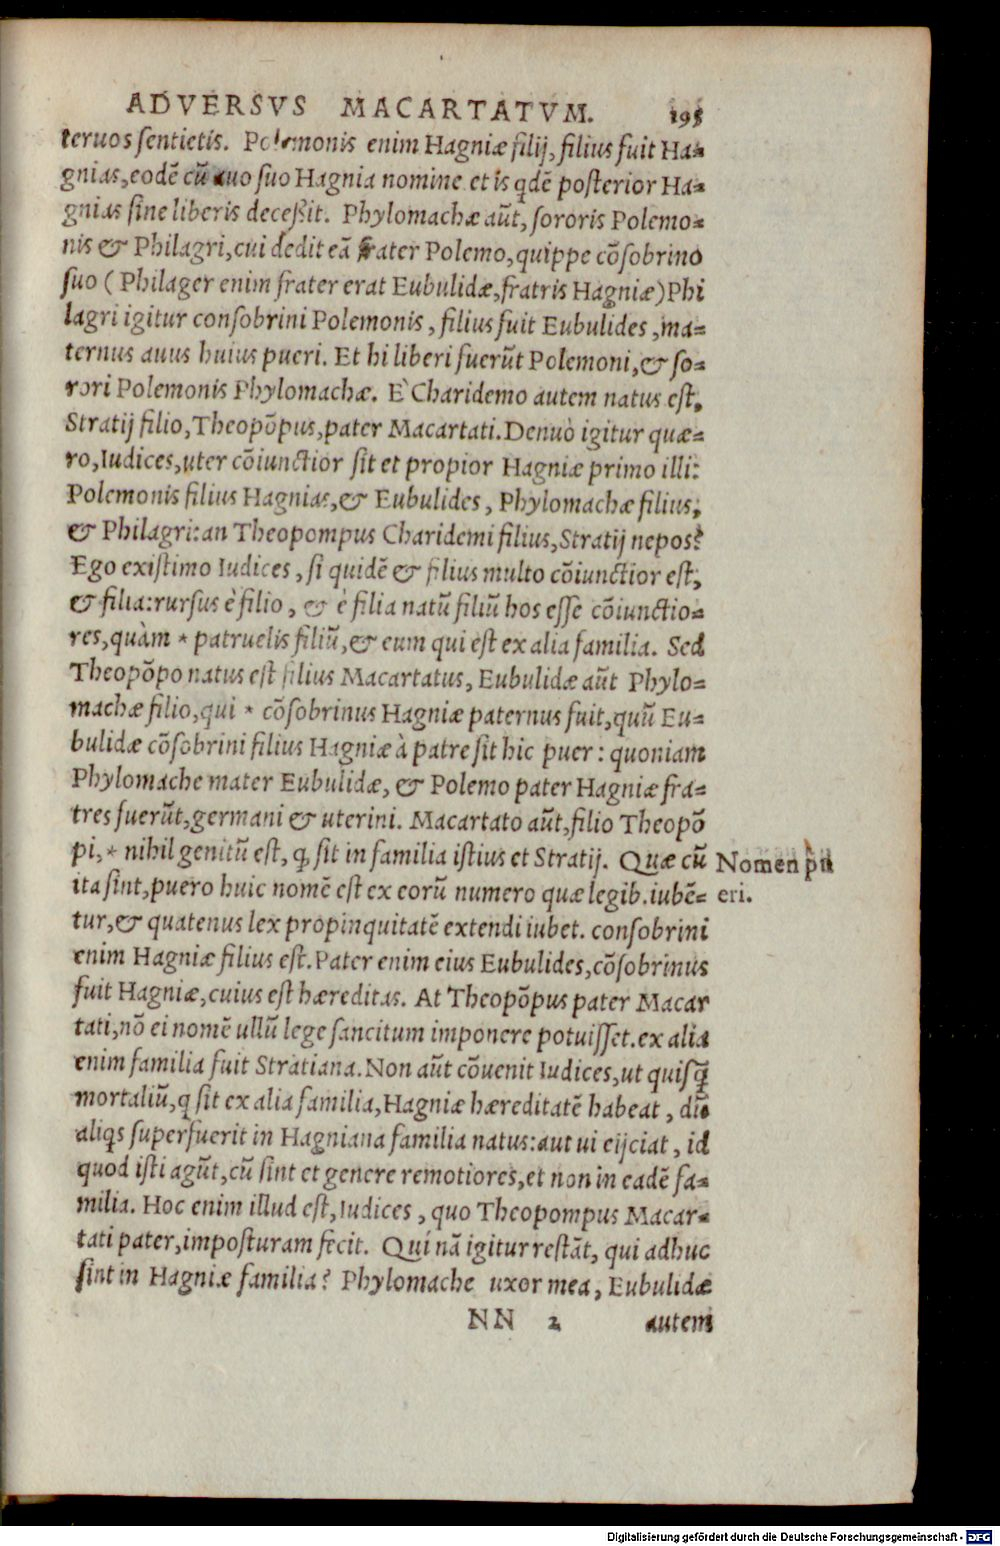 ADVERSVS MACARTATVM. 195
teruos sentietis. Polemonis enim Hagniæ filij, filius fuit Ha-
gnias, eodē cū auo suo Hagnia nomine et is qdē posterior Ha-
gnias sine liberis decessit. Phylomachæ aūt, sororis Polemo-
nis & Philagri, cui dedit eā frater Polemo, quippe cōsobrino
suo (Philager enim frater erat Eubulidæ, fratris Hagniæ) Phi
lagri igitur consobrini Polemonis, filius fuit Eubulides, ma-
ternus auus huius pueri. Et hi liberi fuerūt Polemoni, & so-
rori Polemonis Phylomachæ. È Charidemo autem natus est,
Stratij filio, Theopōpus, pater Macartati. Denuò igitur quæ-
ro, Iudices, uter cōiunctior sit et propior Hagniæ primo illi:
Polemonis filius Hagnias, & Eubulides, Phylomachæ filius,
& Philagri: an Theopompus Charidemi filius, Stratij nepos?
Ego existimo Iudices, si quidē & filius multo cōiunctior est,
& filia: rursus è filio, & è filia natū filiū hos esse cōiunctio-
res, quàm * patruelis filiū, & eum qui est ex alia familia. Sed
Theopōpo natus est filius Macartatus, Eubulidæ aūt Phylo-
machæ filio, qui * cōsobrinus Hagniæ paternus fuit, quū Eu-
bulidæ cōsobrini filius Hagniæ à patre sit hic puer: quoniam
Phylomache mater Eubulidæ, & Polemo pater Hagniæ fra-
tres fuerūt, germani & uterini. Macartato aūt, filio Theopō
pi, * nihil genitū est, q sit in familia istius et Stratij. Quæ cū
Nomen pu
ita sint, puero huic nomē est ex eorū numero quæ legib. iubē-
eri.
tur, & quatenus lex propinquitatē extendi iubet. consobrini
enim Hagniæ filius est. Pater enim eius Eubulides, cōsobrinus
fuit Hagniæ, cuius est hæreditas. At Theopōpus pater Macar
tati, nō ei nomē ullū lege sancitum imponere potuisset. ex alia
enim familia fuit Stratiana. Non aūt cōuenit Iudices, ut quisq̄
mortaliū, q sit ex alia familia, Hagniæ hæreditatē habeat, dū
aliqs superfuerit in Hagniana familia natus: aut ui eijciat, id
quod isti agūt, cū sint et genere remotiores, et non in eadē fa-
milia. Hoc enim illud est, Iudices, quo Theopompus Macar-
tati pater, imposturam fecit. Qui nā igitur restāt, qui adhuc
sint in Hagniæ familia? Phylomache uxor mea, Eubulidæ
NN 2 autem
Digitalisierung gefördert durch die Deutsche Forschungsgemeinschaft - DFG